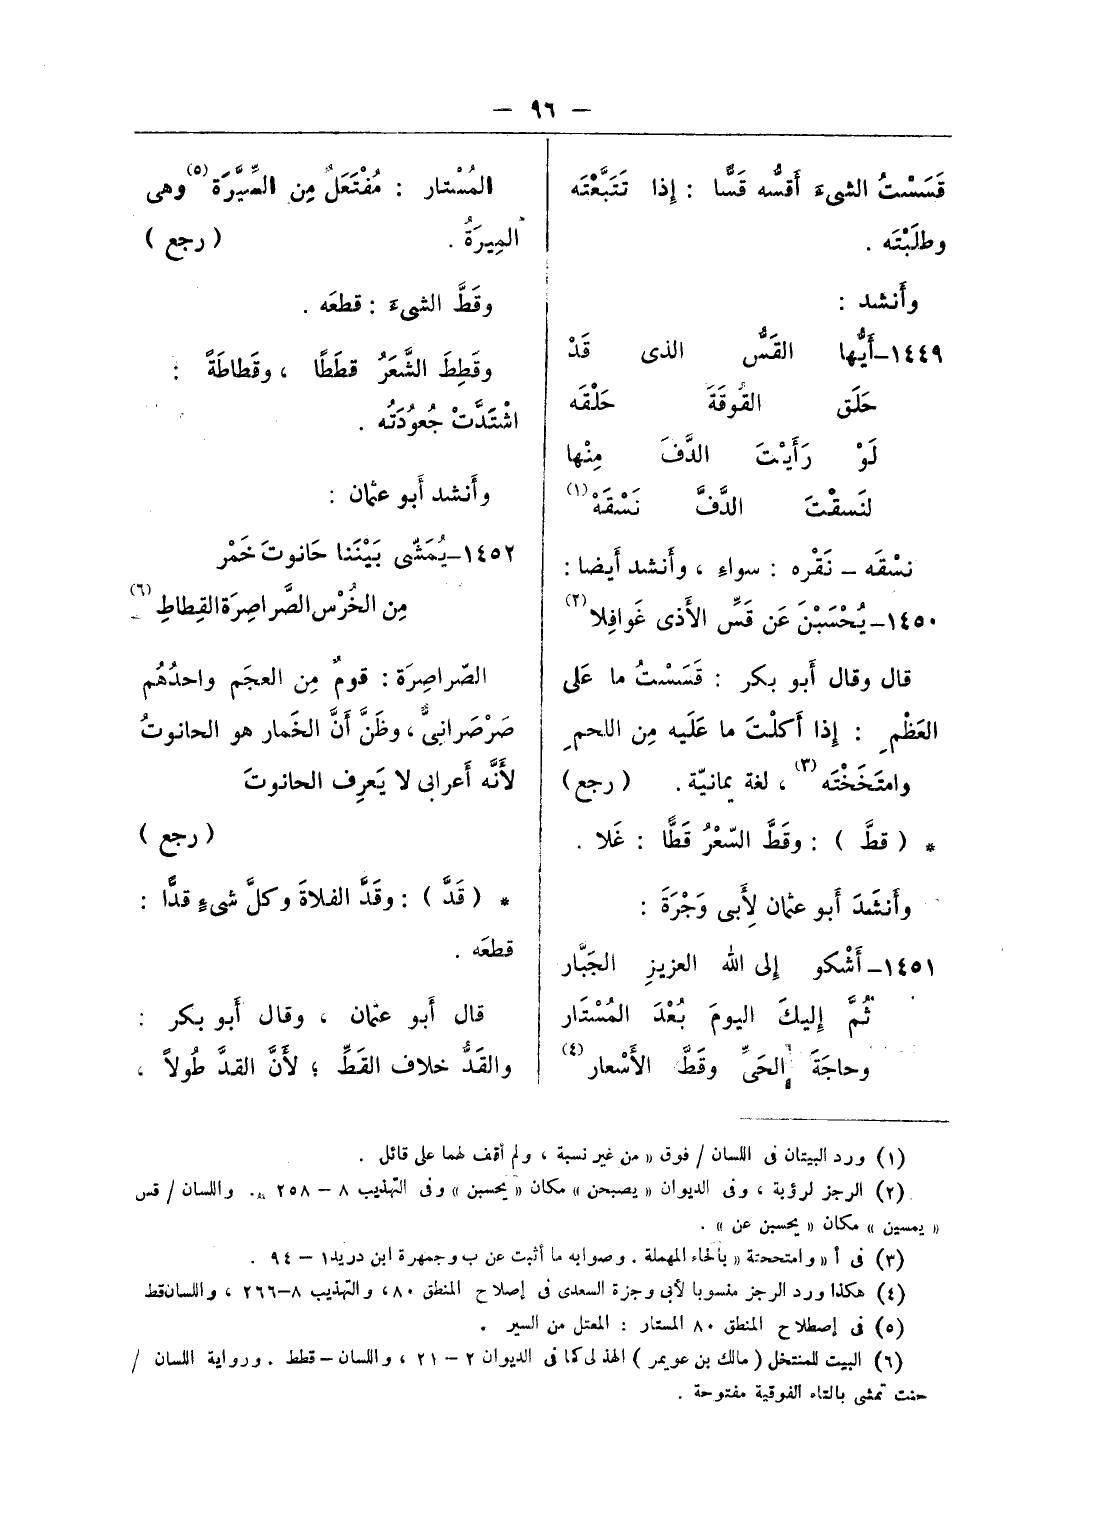 — ٩٦ —
قَسَسْتُ الشىءَ أَقسُّه قَسًّا : إذا تَتَبَّعْتَه
وطلَبْتَه .
وأَنشد :
١٤٤٩–أَيُّها القَسُّ الذى قَدْ
حَلَق القُوقَةَ حَلْقَه
لَوْ رَأَيْتَ الدَّفَ مِنْها
لنَسقْتَ الدَّفَّ نَسْقَهْ (١)
نسْقَه – نَقْره : سواء ، وأَنشد أَيضا :
١٤٥٠–يُحْسَبْنَ عَن قَسِّ الأَذى غَوافِلا (٢)
قال وقال أَبو بكر : قَسَسْتُ ما عَلى
العَظْمِ : إِذا أَكلْتَ ما عَلَيه مِن اللحمِ
وامتَخَخْتَه (٣) ، لغة يمانيّة . ( رجع )
* ( قطَّ ) : وقَطَّ السّعْرُ قَطًّا : غَلا .
وأَنشَدَ أَبو عثمان لِأَبى وَجْرَةَ :
١٤٥١–أَشْكو إِلى الله العزيزِ الجَبَّار
ثُمَّ إِليكَ اليومَ بُعْدَ المُسْتَار
وحاجَةَ الحَىِّ وقَطَّ الأَسْعار (٤)
المُسْتار : مُفْتَعَلٌ مِن السِّيَّرَة (٥) وهى
المِيرَةُ . ( رجع )
وقَطَّ الشىءَ : قطعَه .
وقَطِطَ الشَّعَرُ قطَطًا ، وقَطاطَةً :
اشْتَدَّتْ جُعودَتُه .
وأَنشد أَبو عثمان :
١٤٥٢–يُمَشّى بَيْنَنا حَانوتَ خَمْر
مِن الخُرْس الصَّراصِرَة القِطاطِ (٦)
الصّراصِرَة : قومٌ مِن العجَم واحدُهُم
صَرْصَرانِىٌّ ، وظَنَّ أَنَّ الخَمار هو الحانوتُ
لأَنَّه أَعرابى لا يَعرِف الحانوتَ
( رجع )
* ( قَدَّ ) : وقَدَّ الفلاةَ وكلَّ شىءٍ قدًّا :
قطعَه .
قال أَبو عثمان ، وقال أَبو بكر :
والقَدُّ خلاف القَطِّ ؛ لأَنَّ القدَّ طُولاً ،
(١) ورد البيتان فى اللسان / فوق « من غير نسبة ، ولم أقف لهما على قائل .
(٢) الرجز لرؤبة ، وفى الديوان « يصبحن » مكان « يحسبن » وفى التهذيب ٨ – ٢٥٨ ». واللسان / قس
« يمسين » مكان « يحسبن عن » .
(٣) فى أ « وامتححتة » بالحاء المهملة . وصوابه ما أثبت عن ب وجمهرة ابن دريد ١ – ٩٤ .
(٤) هكذا ورد الرجز منسوبا لأبى وجزة السعدى فى إصلاح المنطق ٨٠ ، والتهذيب ٨–٢٦٦ ، واللسان قط
(٥) فى إصطلاح المنطق ٨٠ المستار : المعتل من السير .
(٦) البيت للمنتخل ( مالك بن عويمر ) الهذلى كما فى الديوان ٢ – ٢١ ، واللسان – قطط . ورواية اللسان /
حنت تمشى بالتاء الفوقية مفتوحة .